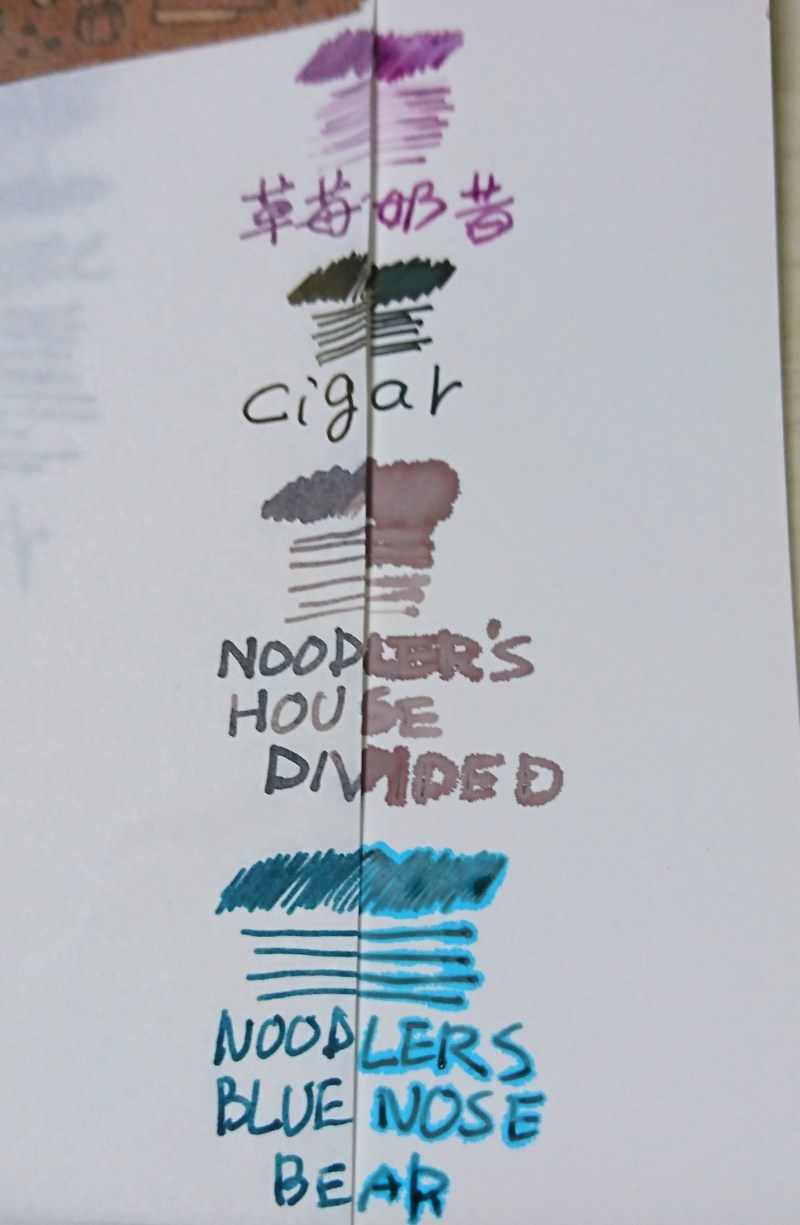 草莓奶昔
cigar
NOODLER'S
HOUSE
DIVIDED
NOODLERS
BLUE NOSE
BEAR